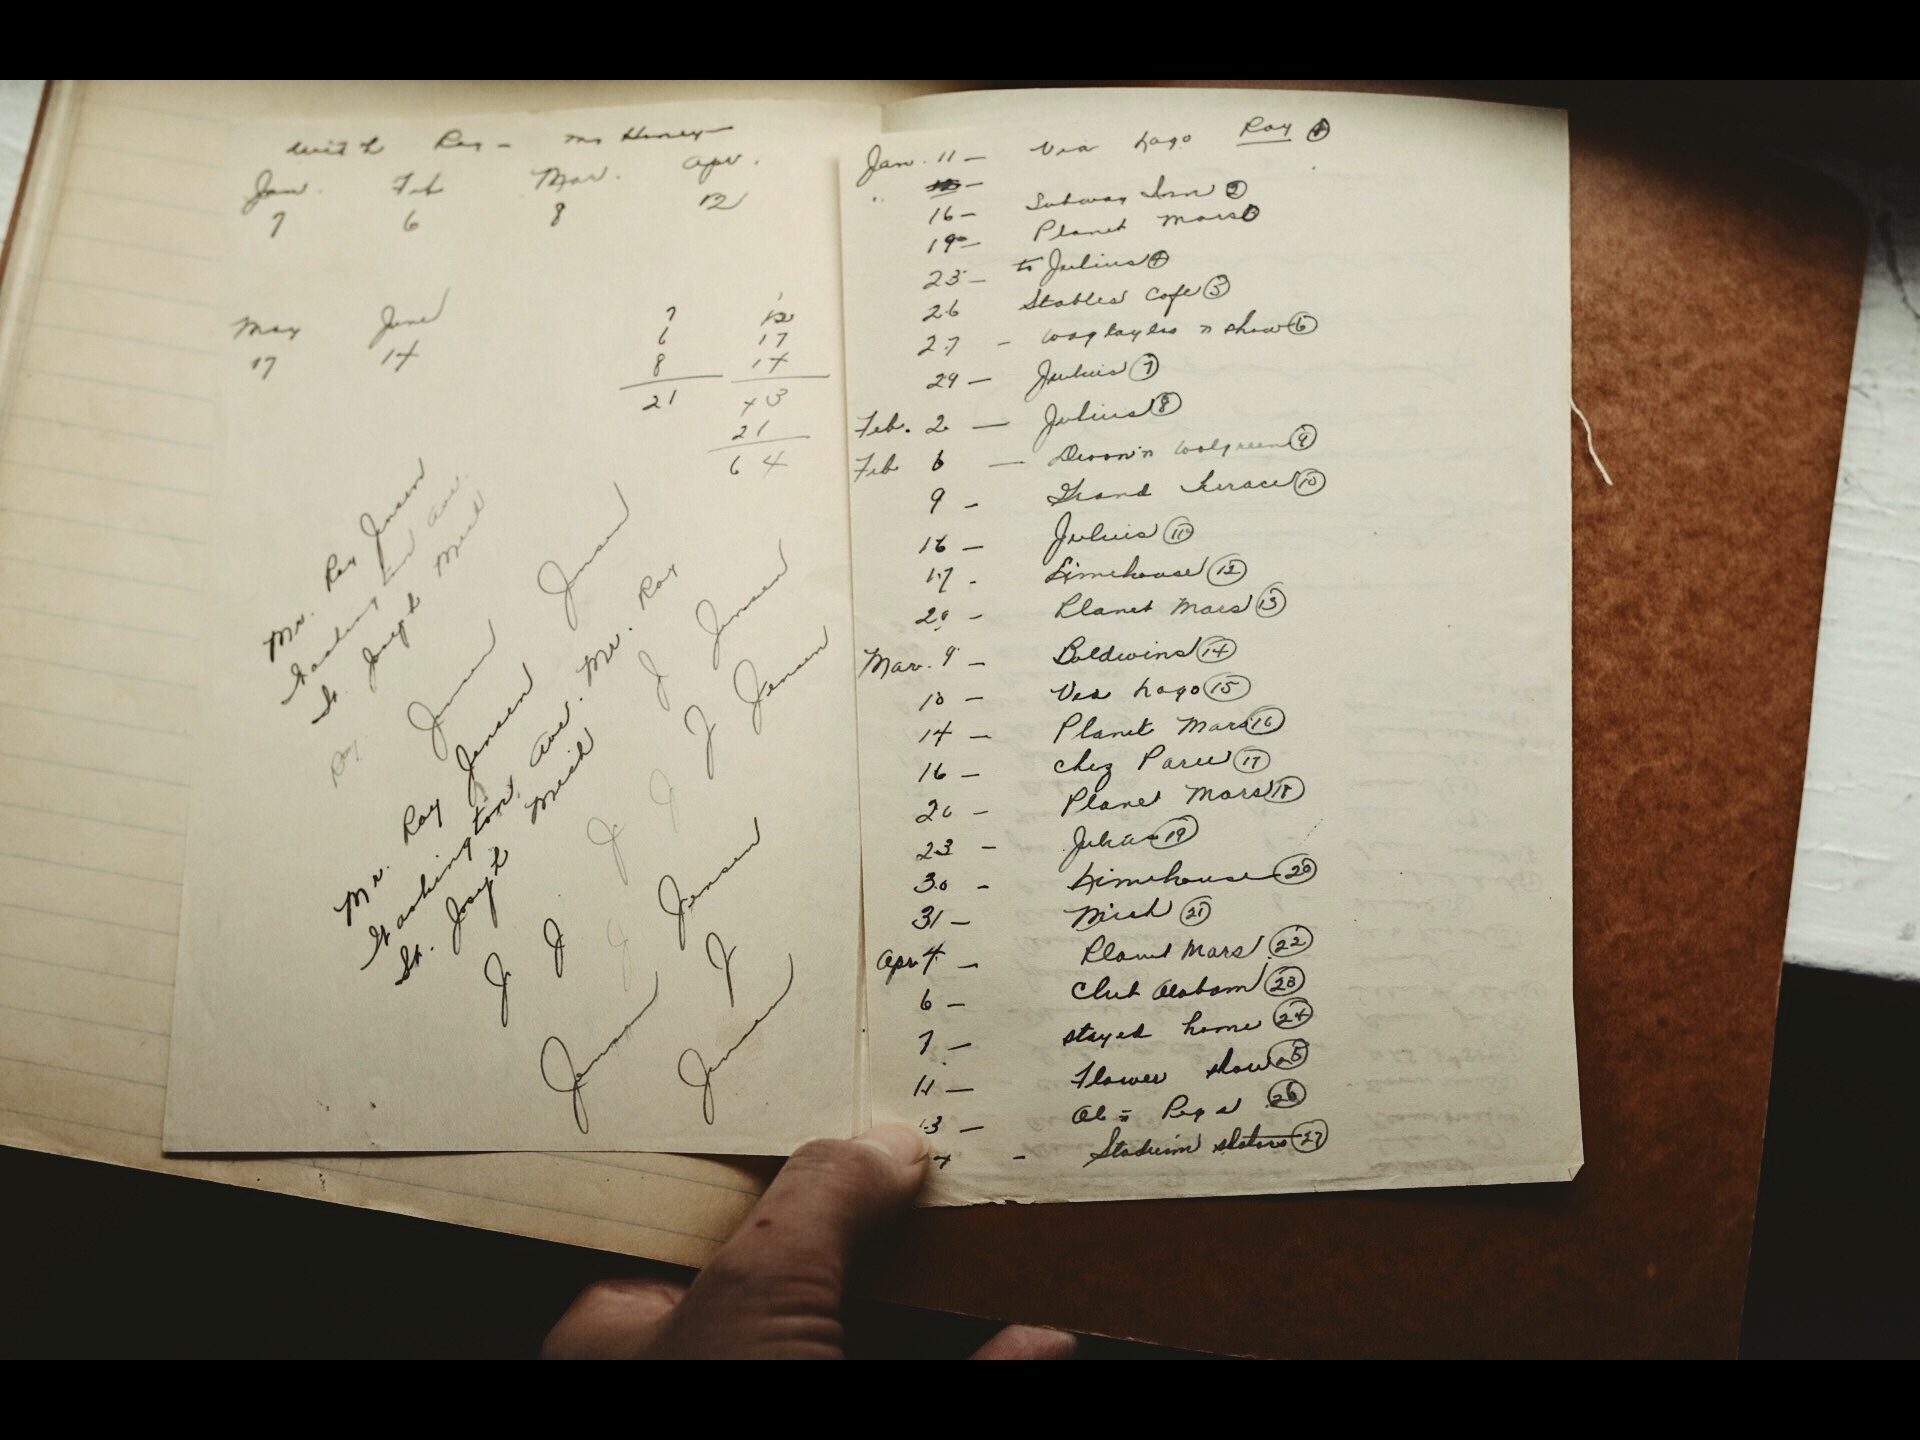 with Ray - my Honey
Jan. Feb Mar. Apr.
7 6 8 12
May June
17 14
7 12
6 17
8 14
21 43
21
64
Mr. Ray Jensen
Washington Ave.
St. Joseph Mich
Jensen
Ray. Jensen
Mr. Ray Jensen
Washington, Ave. Mr. Ray
St. Joseph Mich
J Jensen
J Jensen
J. J J. J
J Jensen
Jensen J
Jensen
Ray
Jan. 11 - Via Lago 1
16 - Subway Inn 2
19 - Planet Mars
23 - to Julius 4
26 Stables Cafe 5
27 - n show 6
29 - Julius 7
Feb. 2 - Julius 8
Feb 6 - Devon n Walgreen 9
9 - Grand Terrace 10
16 - Julius 11
17 - Limehouse 12
29 - Planet Mars 13
Mar. 9 - Baldwins 14
10 - Via Lago 15
14 - Planet Mars 16
16 - Chez Paree 17
20 - Planet Mars 18
23 - Julius 19
30 - Limehouse 20
31 - Mich 21
Apr 4 - Planet Mars 22
6 - Club Alabam 23
7 - stayed home 24
11 - Flower show 25
13 - 26
- Stadium 27